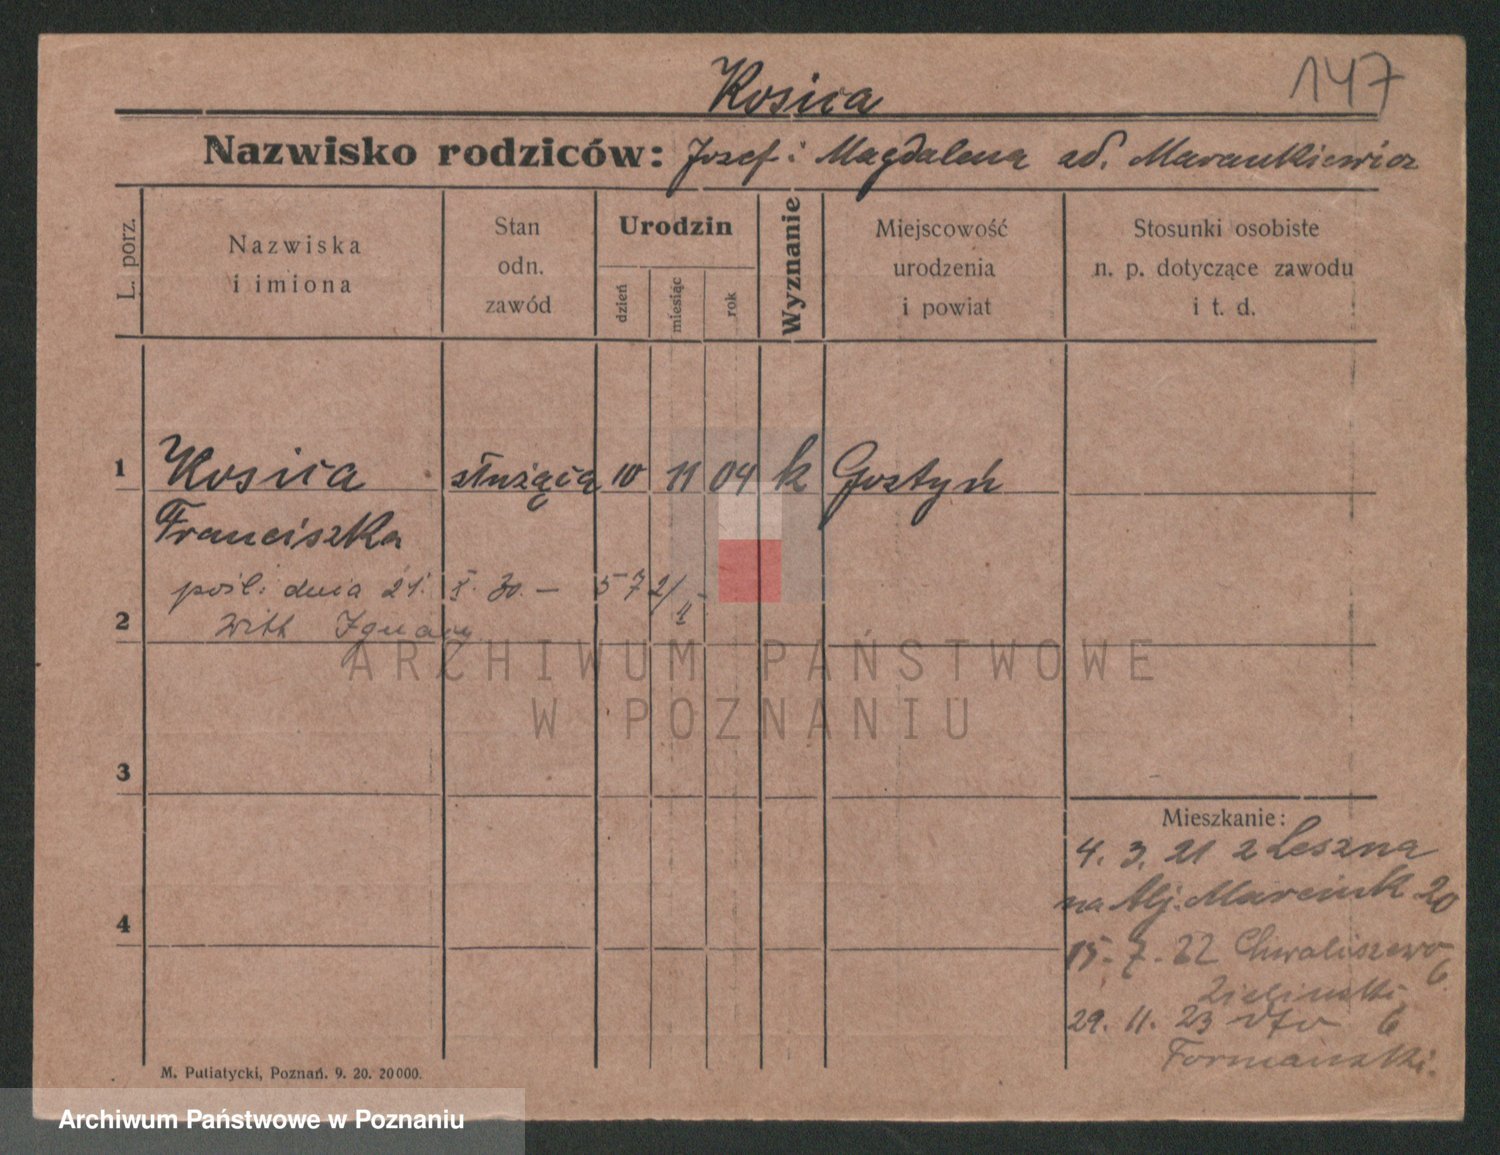 Kosica
147
Nazwisko rodziców: Josef i Magdalena
L. porz.
Nazwiska
i imiona
Stan
odn.
zawód
Urodzin
dzień
miesiąc
rok
Wyznanie
Miejscowość
urodzenia
i powiat
Stosunki osobiste
n. p. dotyczące zawodu
i t. d.
1 Kosica służąca 10 11 04 k Gostyń
Franciszka
pośl. dnia 21. X. 30. — 572/
2 Witt Ignacy
ARCHIWUM PAŃSTWOWE
W POZNANIU
3
Mieszkanie:
4. 3. 21 z Leszna
na Alj. Marcink 20
4
15. 7. 22 Chwaliszewo 6
Zieliński
29. 11. 23 dto 6
Formański.
M. Putiatycki, Poznań. 9. 20. 20000.
Archiwum Państwowe w Poznaniu